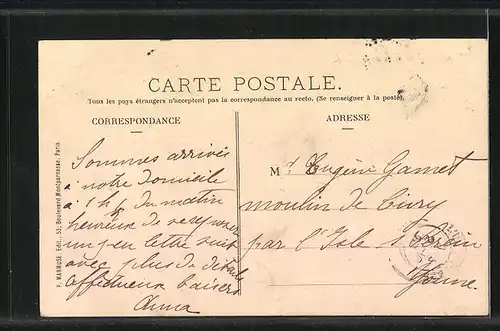 CARTE POSTALE.
Tous les pays étrangers n'acceptent pas la correspondance au recto. (Se renseigner à la poste).
CORRESPONDANCE
ADRESSE
Sommes arrivés
à notre domicile
à 1 h du matin
heureux de se reposer
un peu lettre suit
avec plus de détails
affectueux baisers
Anna
Mr Eugène Gamet
moulin de Civry
par l'Isle s Serein
Yonne.
P. MARMUSE, Edit., 53, Boulevard Montparnasse, Paris